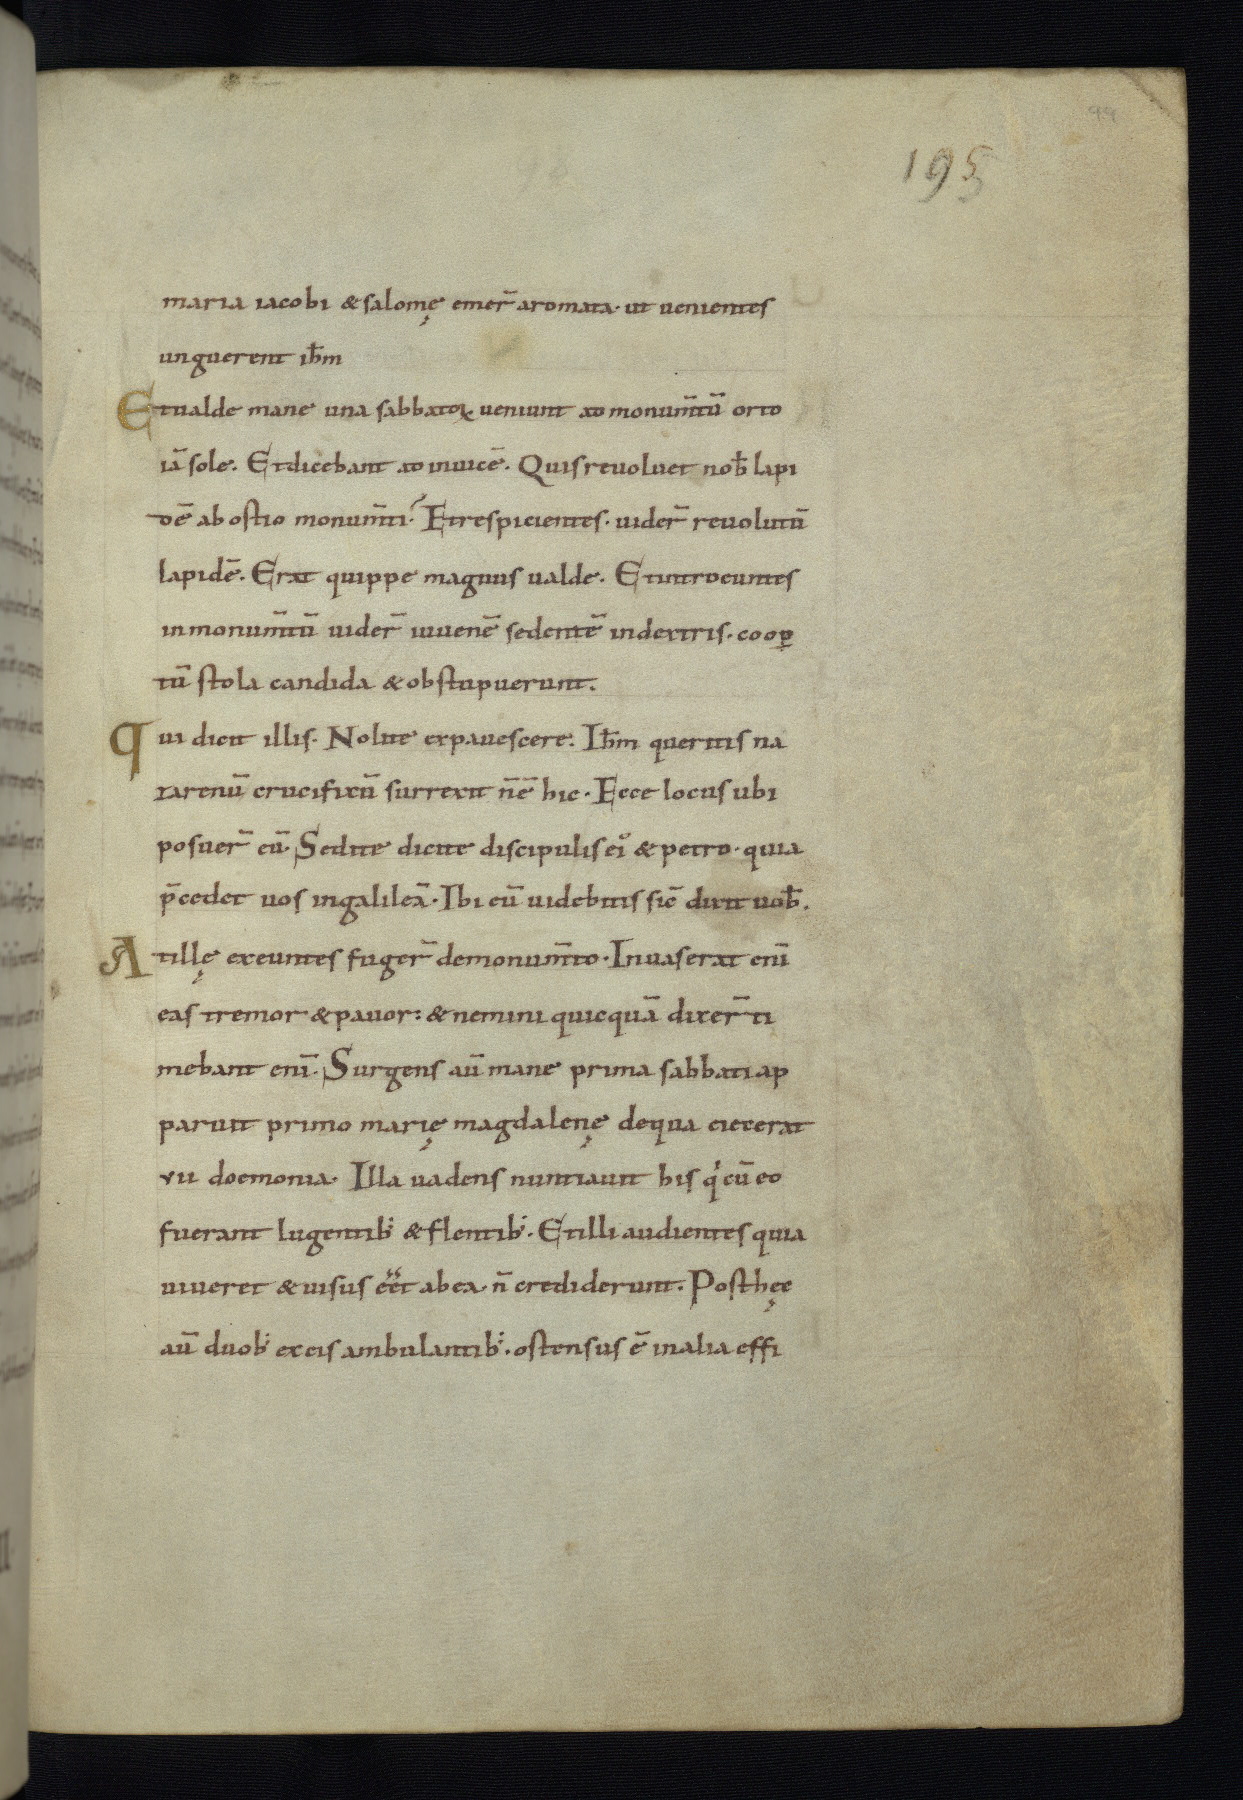 99
195
maria iacobi & salomę emer̄ aromata· ut uenientes
unguerent ihm̄
Et ualde mane una sabbatoꝝ ueniunt ad monum̄tū orto
iā sole. Et dicebant ad inuicē. Quis reuoluet nob̄ lapi
dē ab ostio monum̄ti? Et respicientes· uider̄ reuolutū
lapidē. Erat quippe magnus ualde. Et introeuntes
in monum̄tū uider̄ iuuenē sedentē in dextris. cooꝑ
tū stola candida & obstupuerunt.
qui dicit illis. Nolite expauescere. Ihm̄ queritis na
zarenū crucifixū surrexit n̄ ē hic. Ecce locus ubi
posuer̄ eū. Sed ite dicite discipulis ei᾿ & petro· quia
p̄cedet uos in galileā. Ibi eū uidebitis sic̄ dixit uob̄.
At illę exeuntes fuger̄ de monum̄to. Inuaserat eni̅
eas tremor & pauor: & nemini quicquā dixer̄ ti
mebant eni̅. Surgens aū mane prima sabbati ap
paruit primo marię magdalenę de qua eiecerat
vii doemonia. Illa uadens nuntiauit his q̍ cū eo
fuerant lugentib; & flentib;. Et illi audientes quia
uiueret & uisus eēt ab ea· n̄ crediderunt. Post hęc
aū duob; ex eis ambulantib;. ostensus ē in alia effi